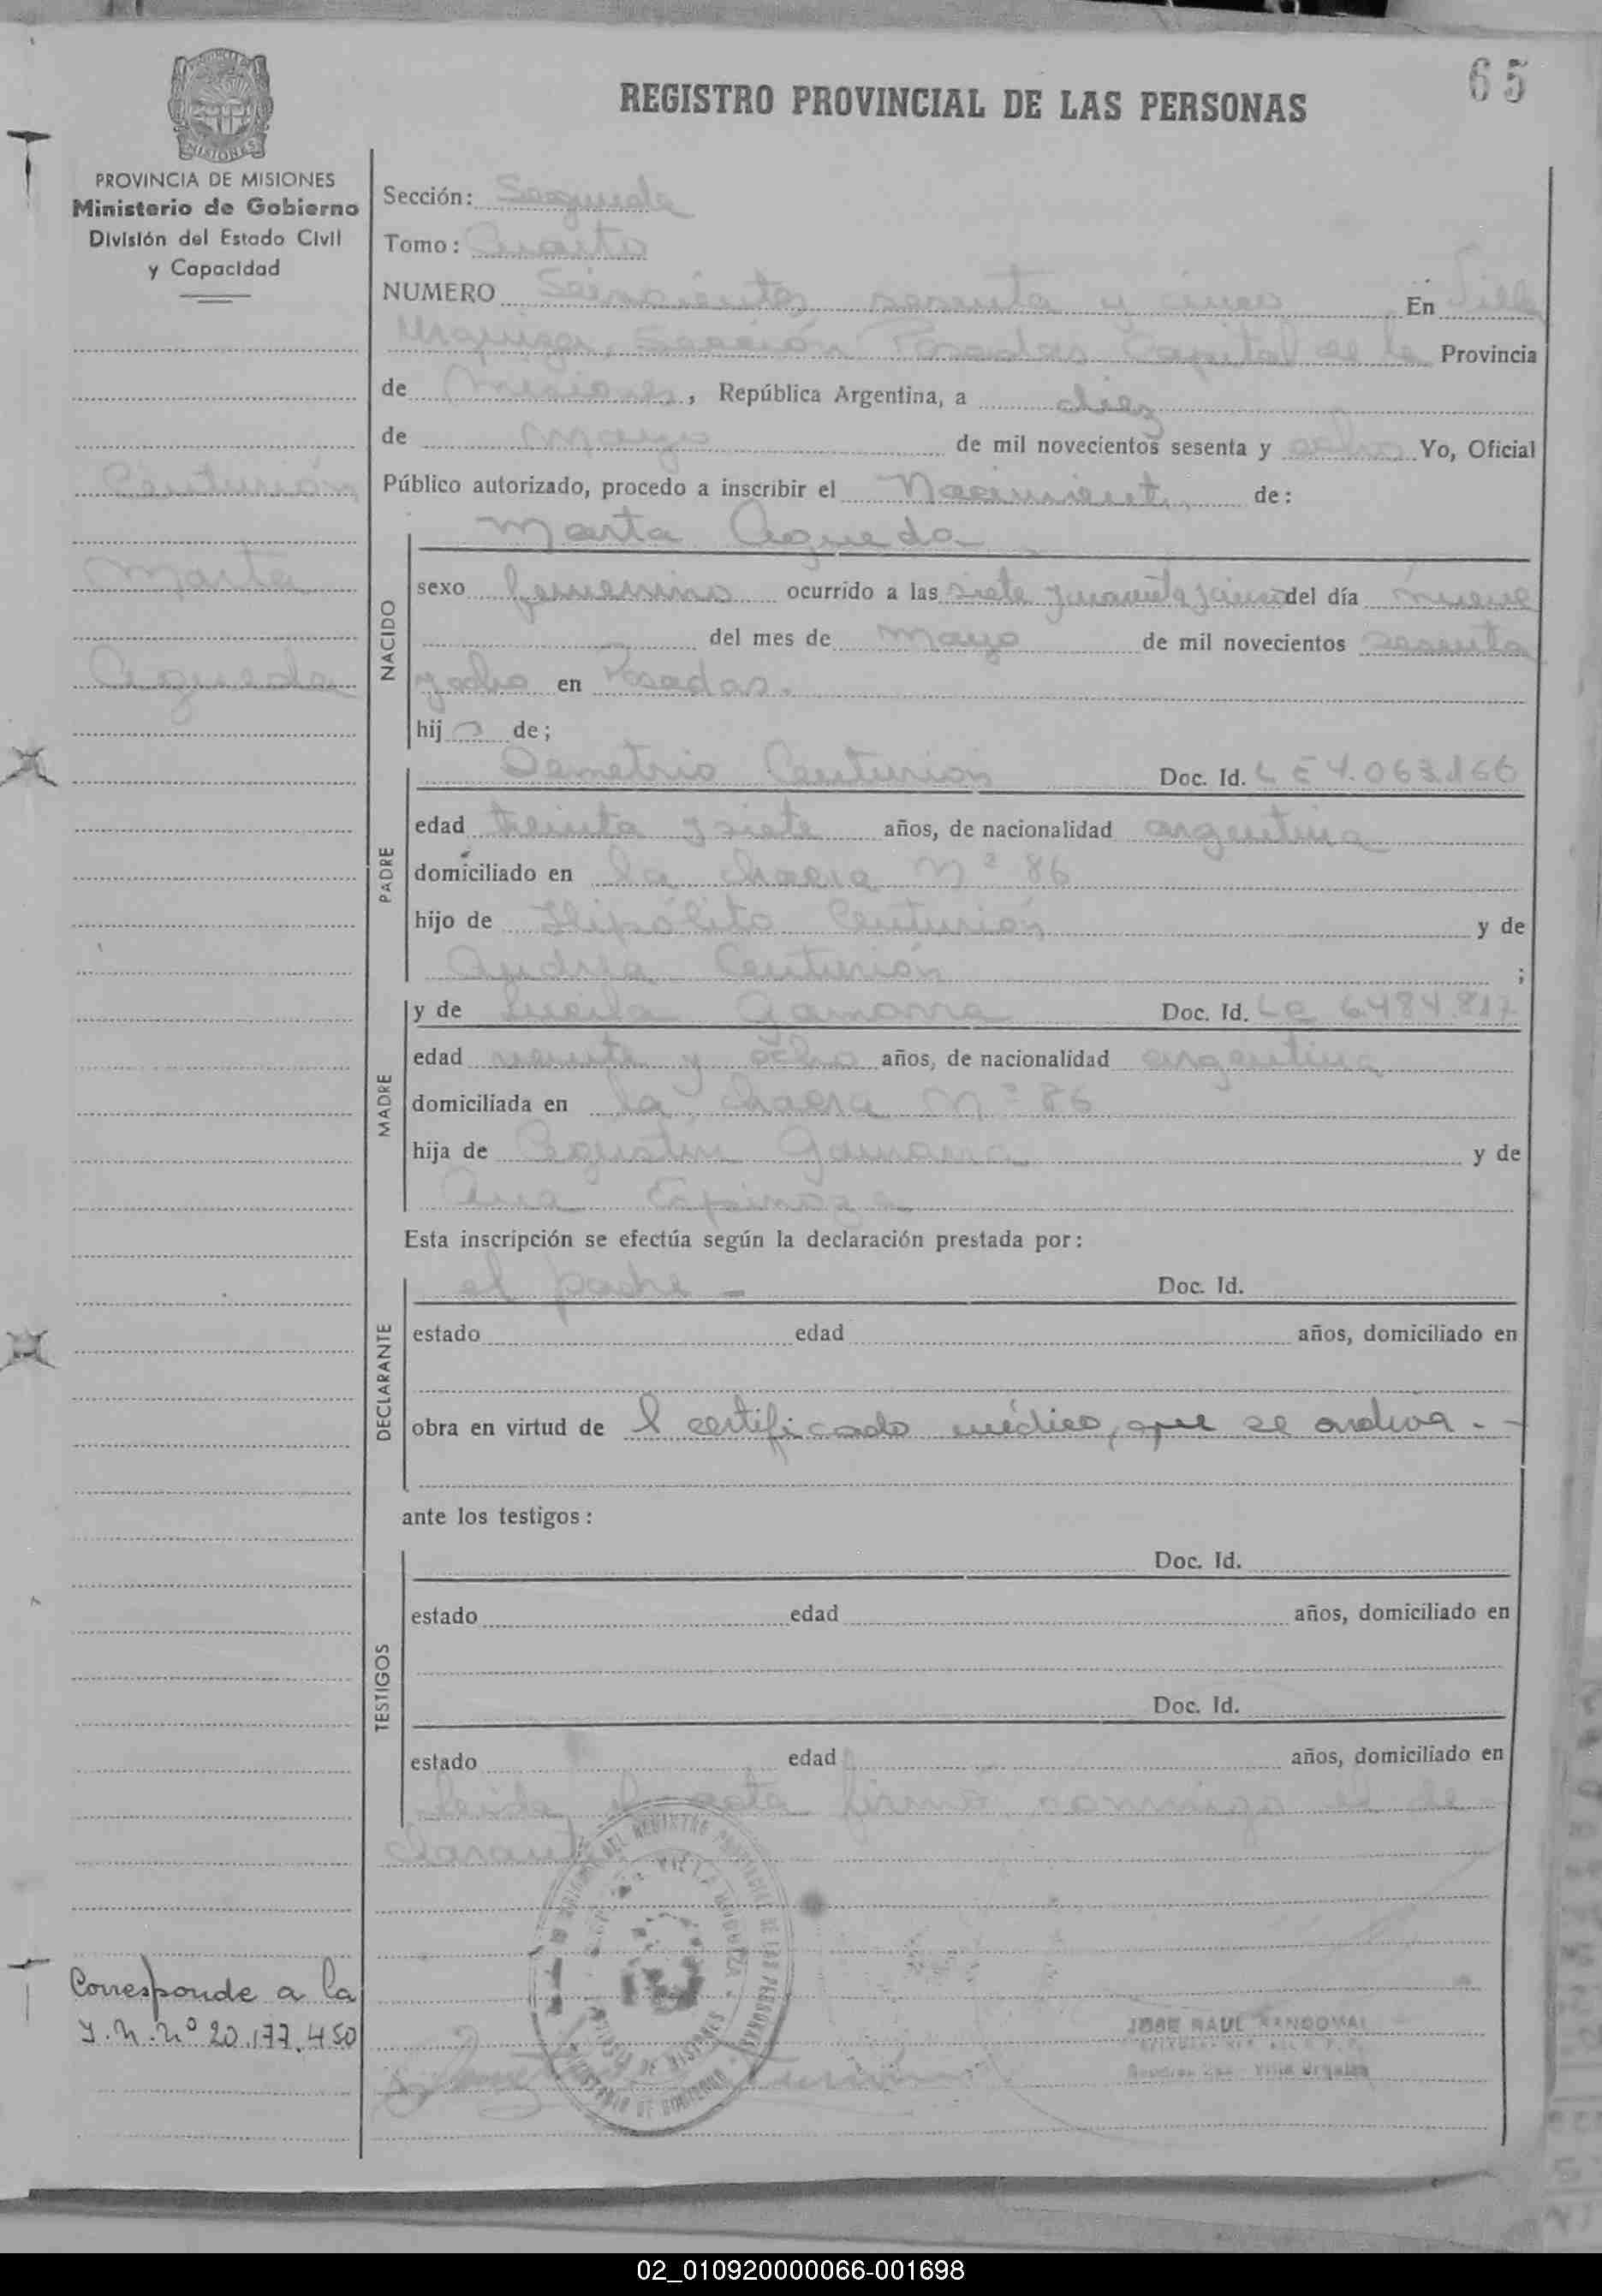 65
REGISTRO PROVINCIAL DE LAS PERSONAS
MISIONES
PROVINCIA DE MISIONES
Ministerio de Gobierno
División del Estado Civil
y Capacidad
Centurión
Marta
Agueda
Corresponde a la
I.N. Nº 20.177.450
Sección: Segunda
Tomo: Cuarto
NUMERO Seiscientos sesenta y cinco En Villa
Urquiza, Sección Posadas Capital de la Provincia
de Misiones, República Argentina, a diez
de mayo de mil novecientos sesenta y ocho Yo, Oficial
Público autorizado, procedo a inscribir el Nacimiento de:
Marta Agueda
NACIDO
sexo femenino ocurrido a las siete y cuarenta y cinco del día nueve
del mes de mayo de mil novecientos sesenta
y ocho en Posadas.
hij a de;
Demetrio Centurión Doc. Id. L E 4.063.166
PADRE
edad treinta y siete años, de nacionalidad argentina
domiciliado en la chacra Nº 86
hijo de Hipólito Centurión y de
Andrea Centurión ;
y de Lucila Gamarra Doc. Id. LC 6.484.817
MADRE
edad veinte y ocho años, de nacionalidad argentina
domiciliada en la chacra Nº 86
hija de Agustín Gamarra y de
Ana Espinoza
Esta inscripción se efectúa según la declaración prestada por:
el padre - Doc. Id.
DECLARANTE
estado edad años, domiciliado en
obra en virtud de l certificado médico, que se archiva. -
ante los testigos:
Doc. Id.
TESTIGOS
estado edad años, domiciliado en
Doc. Id.
estado edad años, domiciliado en
Leida el acta firmó conmigo el de
clarante
REGISTRO PROVINCIAL DE LAS PERSONAS
VILLA URQUIZA
MINISTERIO DE GOBIERNO
JOSE RAUL SANDOVAL
Villa Urquiza
02_010920000066-001698